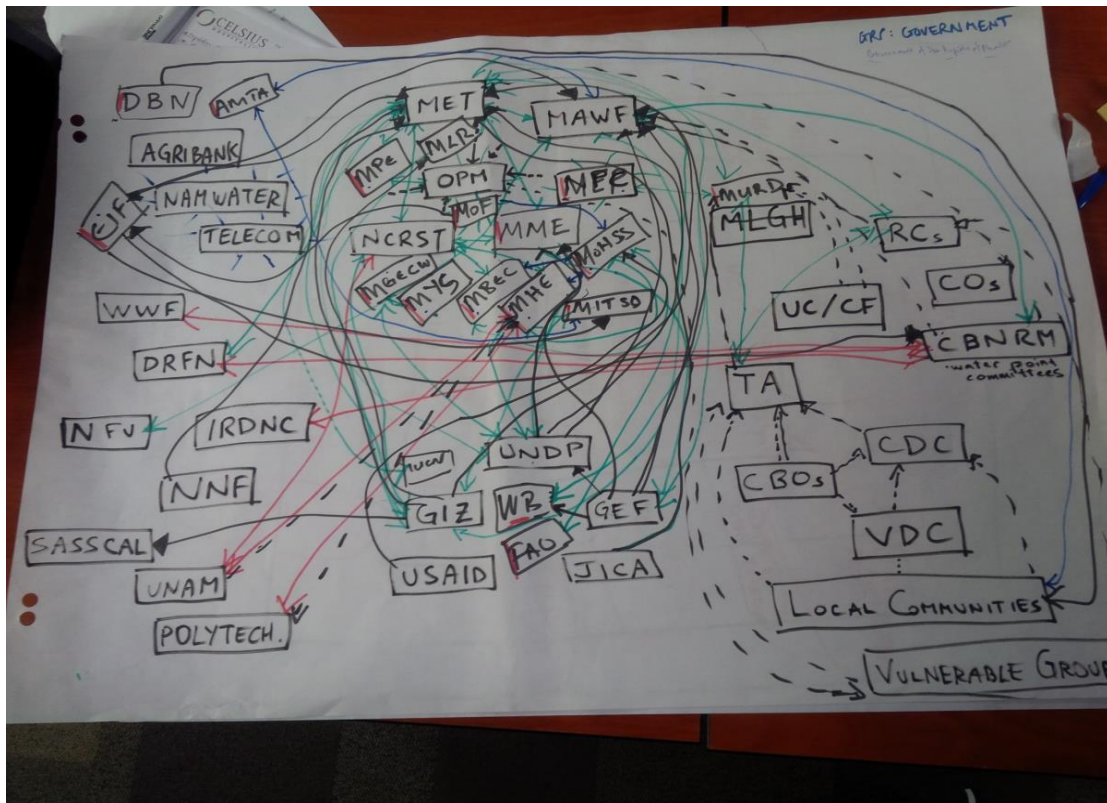 CELSIUS
GRP: GOVERNMENT
DBN
AMTA
MET
MAWF
AGRIBANK
MPC
MLR
OPM
NAMWATER
MoF
MME
MURD
MLGH
EIF
TELECOM
NCRST
MoHSS
RCs
MGECW
MYS
MHE
COs
WWF
UC/CF
CBNRM
water point
committees
DRFN
TA
NFU
IRDNC
UNDP
CDC
CBOs
NNF
GIZ
WB
GEF
VDC
SASSCAL
FAO
UNAM
USAID
JICA
LOCAL COMMUNITIES
POLYTECH.
VULNERABLE GROUP